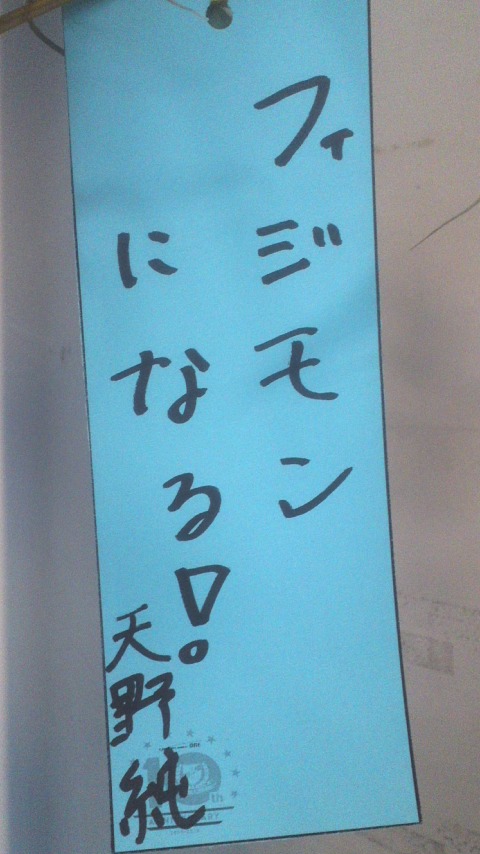 フィジモン
になる!
天野純
10th